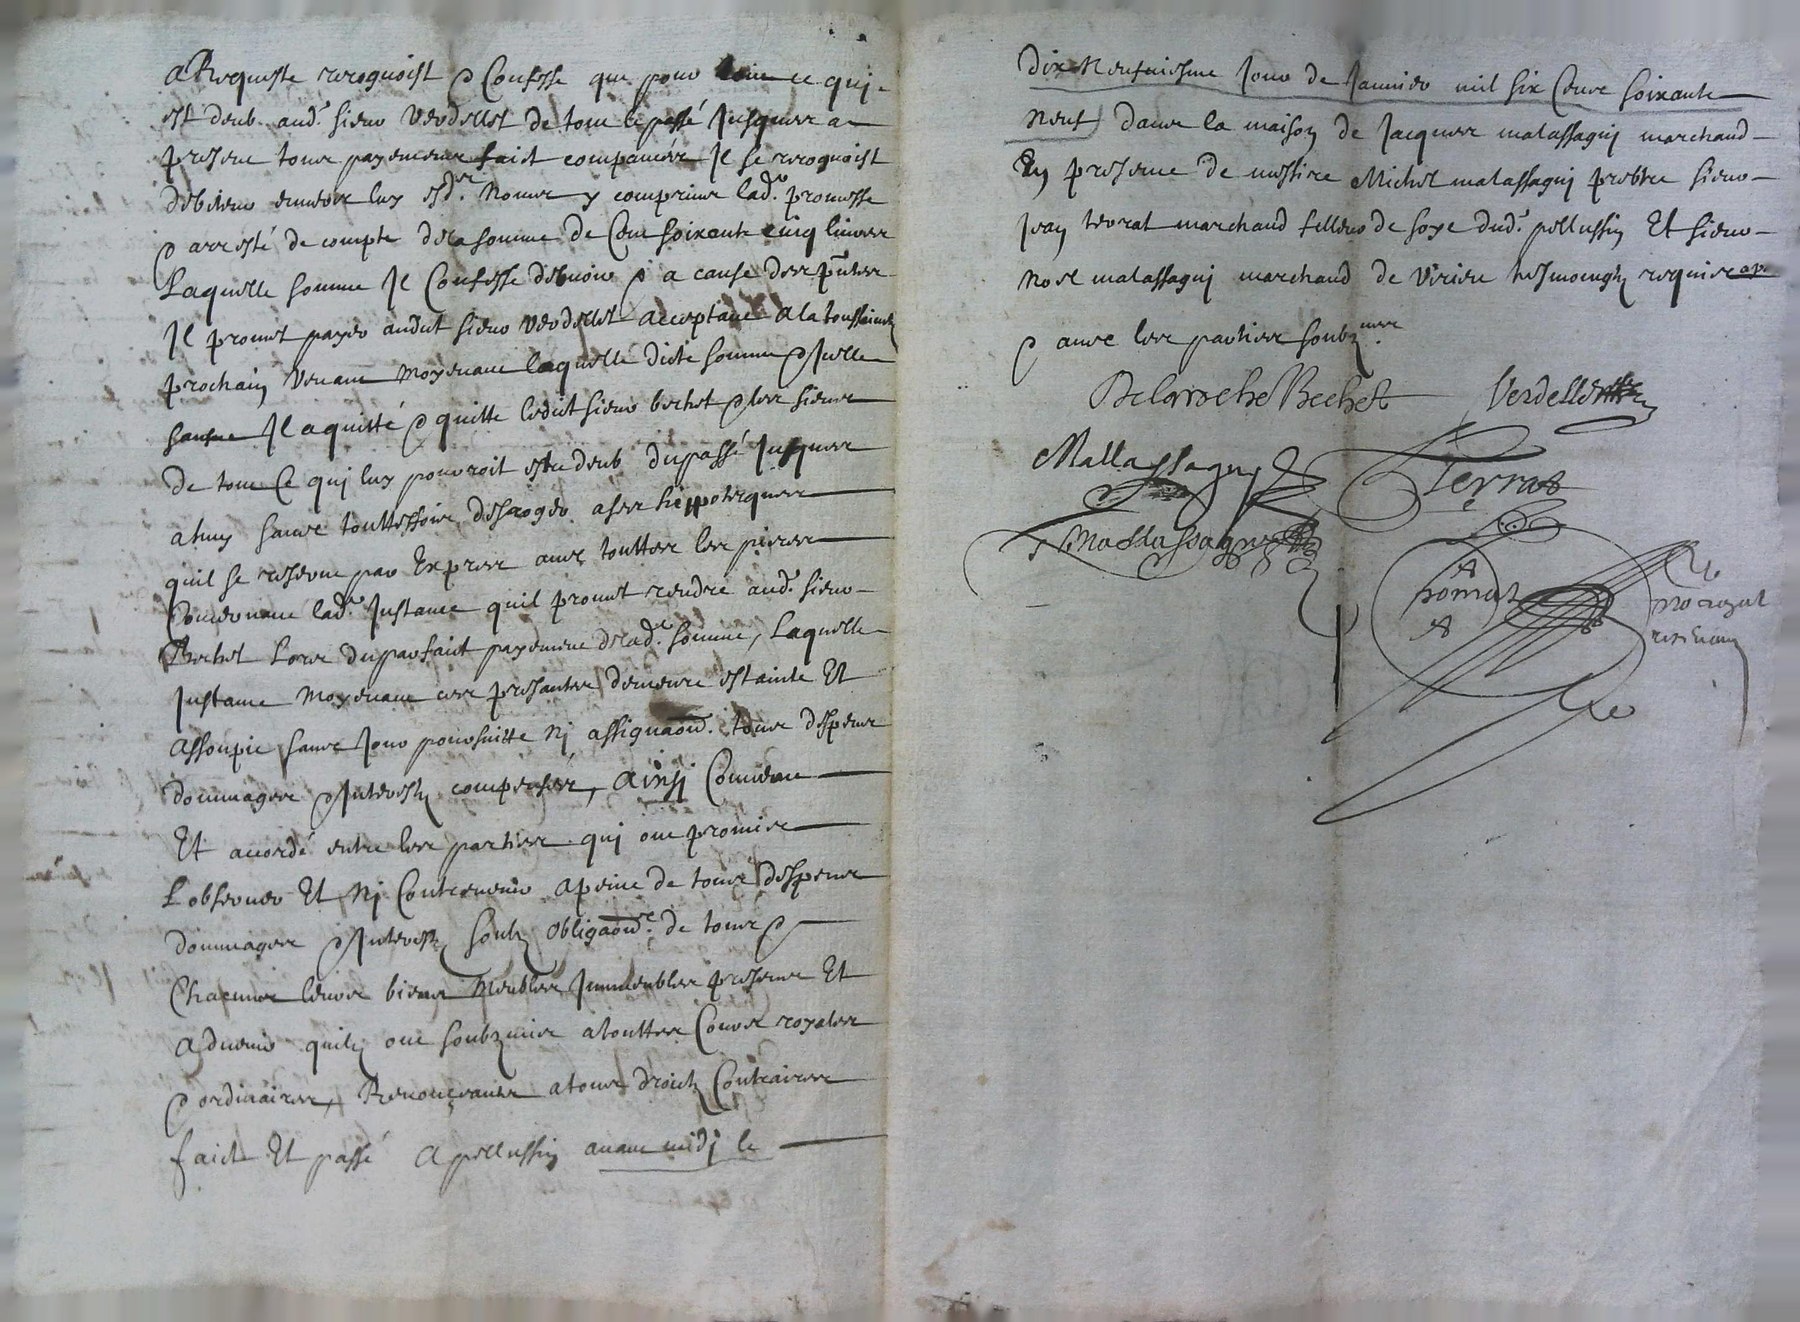 a Requeste recognoist & Confesse que pour tout ce qui
est deub aud.t sieur Verdellet de tout le passé Jusques a
present tous payements faict compancés Il se recognoist
debiteur envers luy esd. Noms y comprins lad.e promesse
& arresté de compte de la somme de Cent soixante cinq livres
Laquelle somme Il Confesse debvoir & a cause des pntes
Il promet payer audict sieur Verdellet acceptant a la toussaincts
prochain Venant Moyenant laquelle dicte somme & Icelle
saufve Il a quitté & quitte ledict sieur bechet & les siens
de tout Ce qui luy pouvroit estre deub du passé Jusques
a huy sans touttesfois desroger a ses hippoteques
quil se reserve par Expres avec touttes les pieces
Concernant lad.e Instance quil promet rendre aud.t sieur
Bechet Lors du parfaict payement de lad.e somme, Laquelle
Instance Moyenant ces presantes demeure estainte Et
assoupie sans Jour poursuitte Ni assignaon. tous despens
dommages & Interestz compensés, ainsi Convenu
Et accordé entre les parties qui ont promis
Lobserver Et Ni Contrevenir a peine de tous despens
dommages & Interestz soubz obligaon.s de tous &
Chacuns leurs biens Meubles Immeubles presens Et
advenir quilz ont soubzmis a touttes Cours royales
& ordinaires, Renonçants a tous droictz Contraires
faict Et passé a pellussin avant midi le
Dix Neufviesme Jour de Janvier mil six Cens soixante
Neuf dans la maison de Jacques malassagni marchand
En presence de messire Michel malassagni prebtre sieur
Jean terrat marchand filleur de soye dud.t pellussin Et sieur
Noel malassagni marchand de Virieu tesmoingtz requis
& avec les parties soubz.nes
Delaroche Bechet Verdellet
Mallassagny Terrat
Mallassagny
Thomas
No royal
recevant